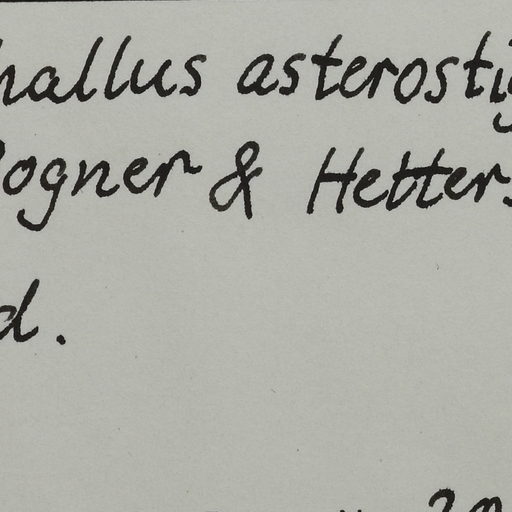 hallus asterosti
ogner & Hetters
d.